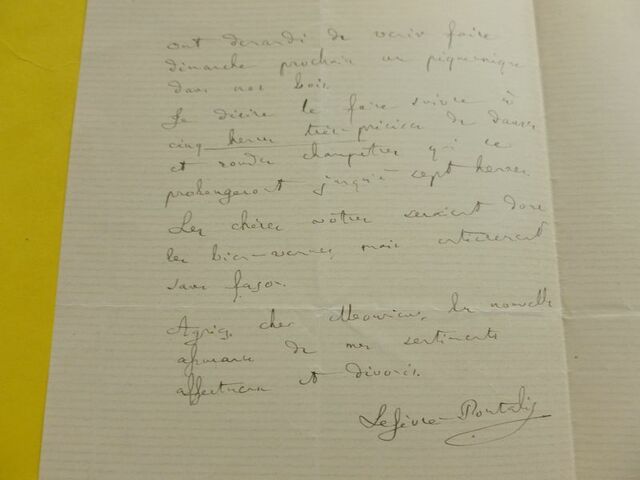 ont demandé de venir faire
dimanche prochain un pique-nique
dans nos bois.
Je désire le faire suivre à
cinq heures très-précises de danses
et rondes champêtres qui se
prolongeront jusqu'à sept heures.
Les chères vôtres seraient donc
les bien-venues, mais entièrement
sans façon.
Agréez, cher Monsieur, la nouvelle
assurance de mes sentiments
affectueux et dévoués.
Lefèvre-Pontalis